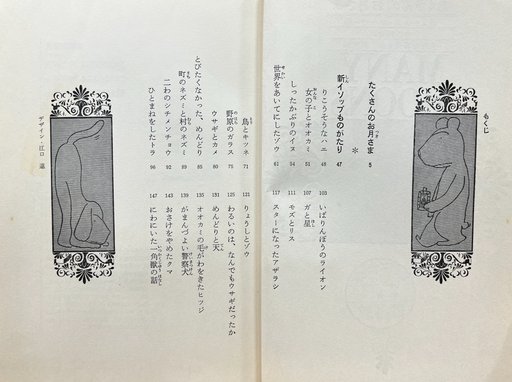 もくじ
たくさんのお月さま 5
＊
新イソップものがたり 47
りこうそうなハエ 48
女の子とオオカミ 51
しったかぶりのイヌ 54
世界をあいてにしたゾウ 61
鳥とキツネ 71
野原のガラス 75
ウサギとカメ 80
とびたくなかった、めんどり 85
町のネズミと村のネズミ 89
二わのシチメンチョウ 92
ひとまねをしたトラ 96
103 いばりんぼうのライオン
107 ガと星
111 モズとリス
117 スターになったアザラシ
121 りょうしとゾウ
125 わるいのは、なんでもウサギだったか
131 めんどりと天
135 オオカミの毛がわをきたヒツジ
139 がまんづよい警察犬
143 おさけをやめたクマ
147 にわにいた一角獣の話
デザイン・江口